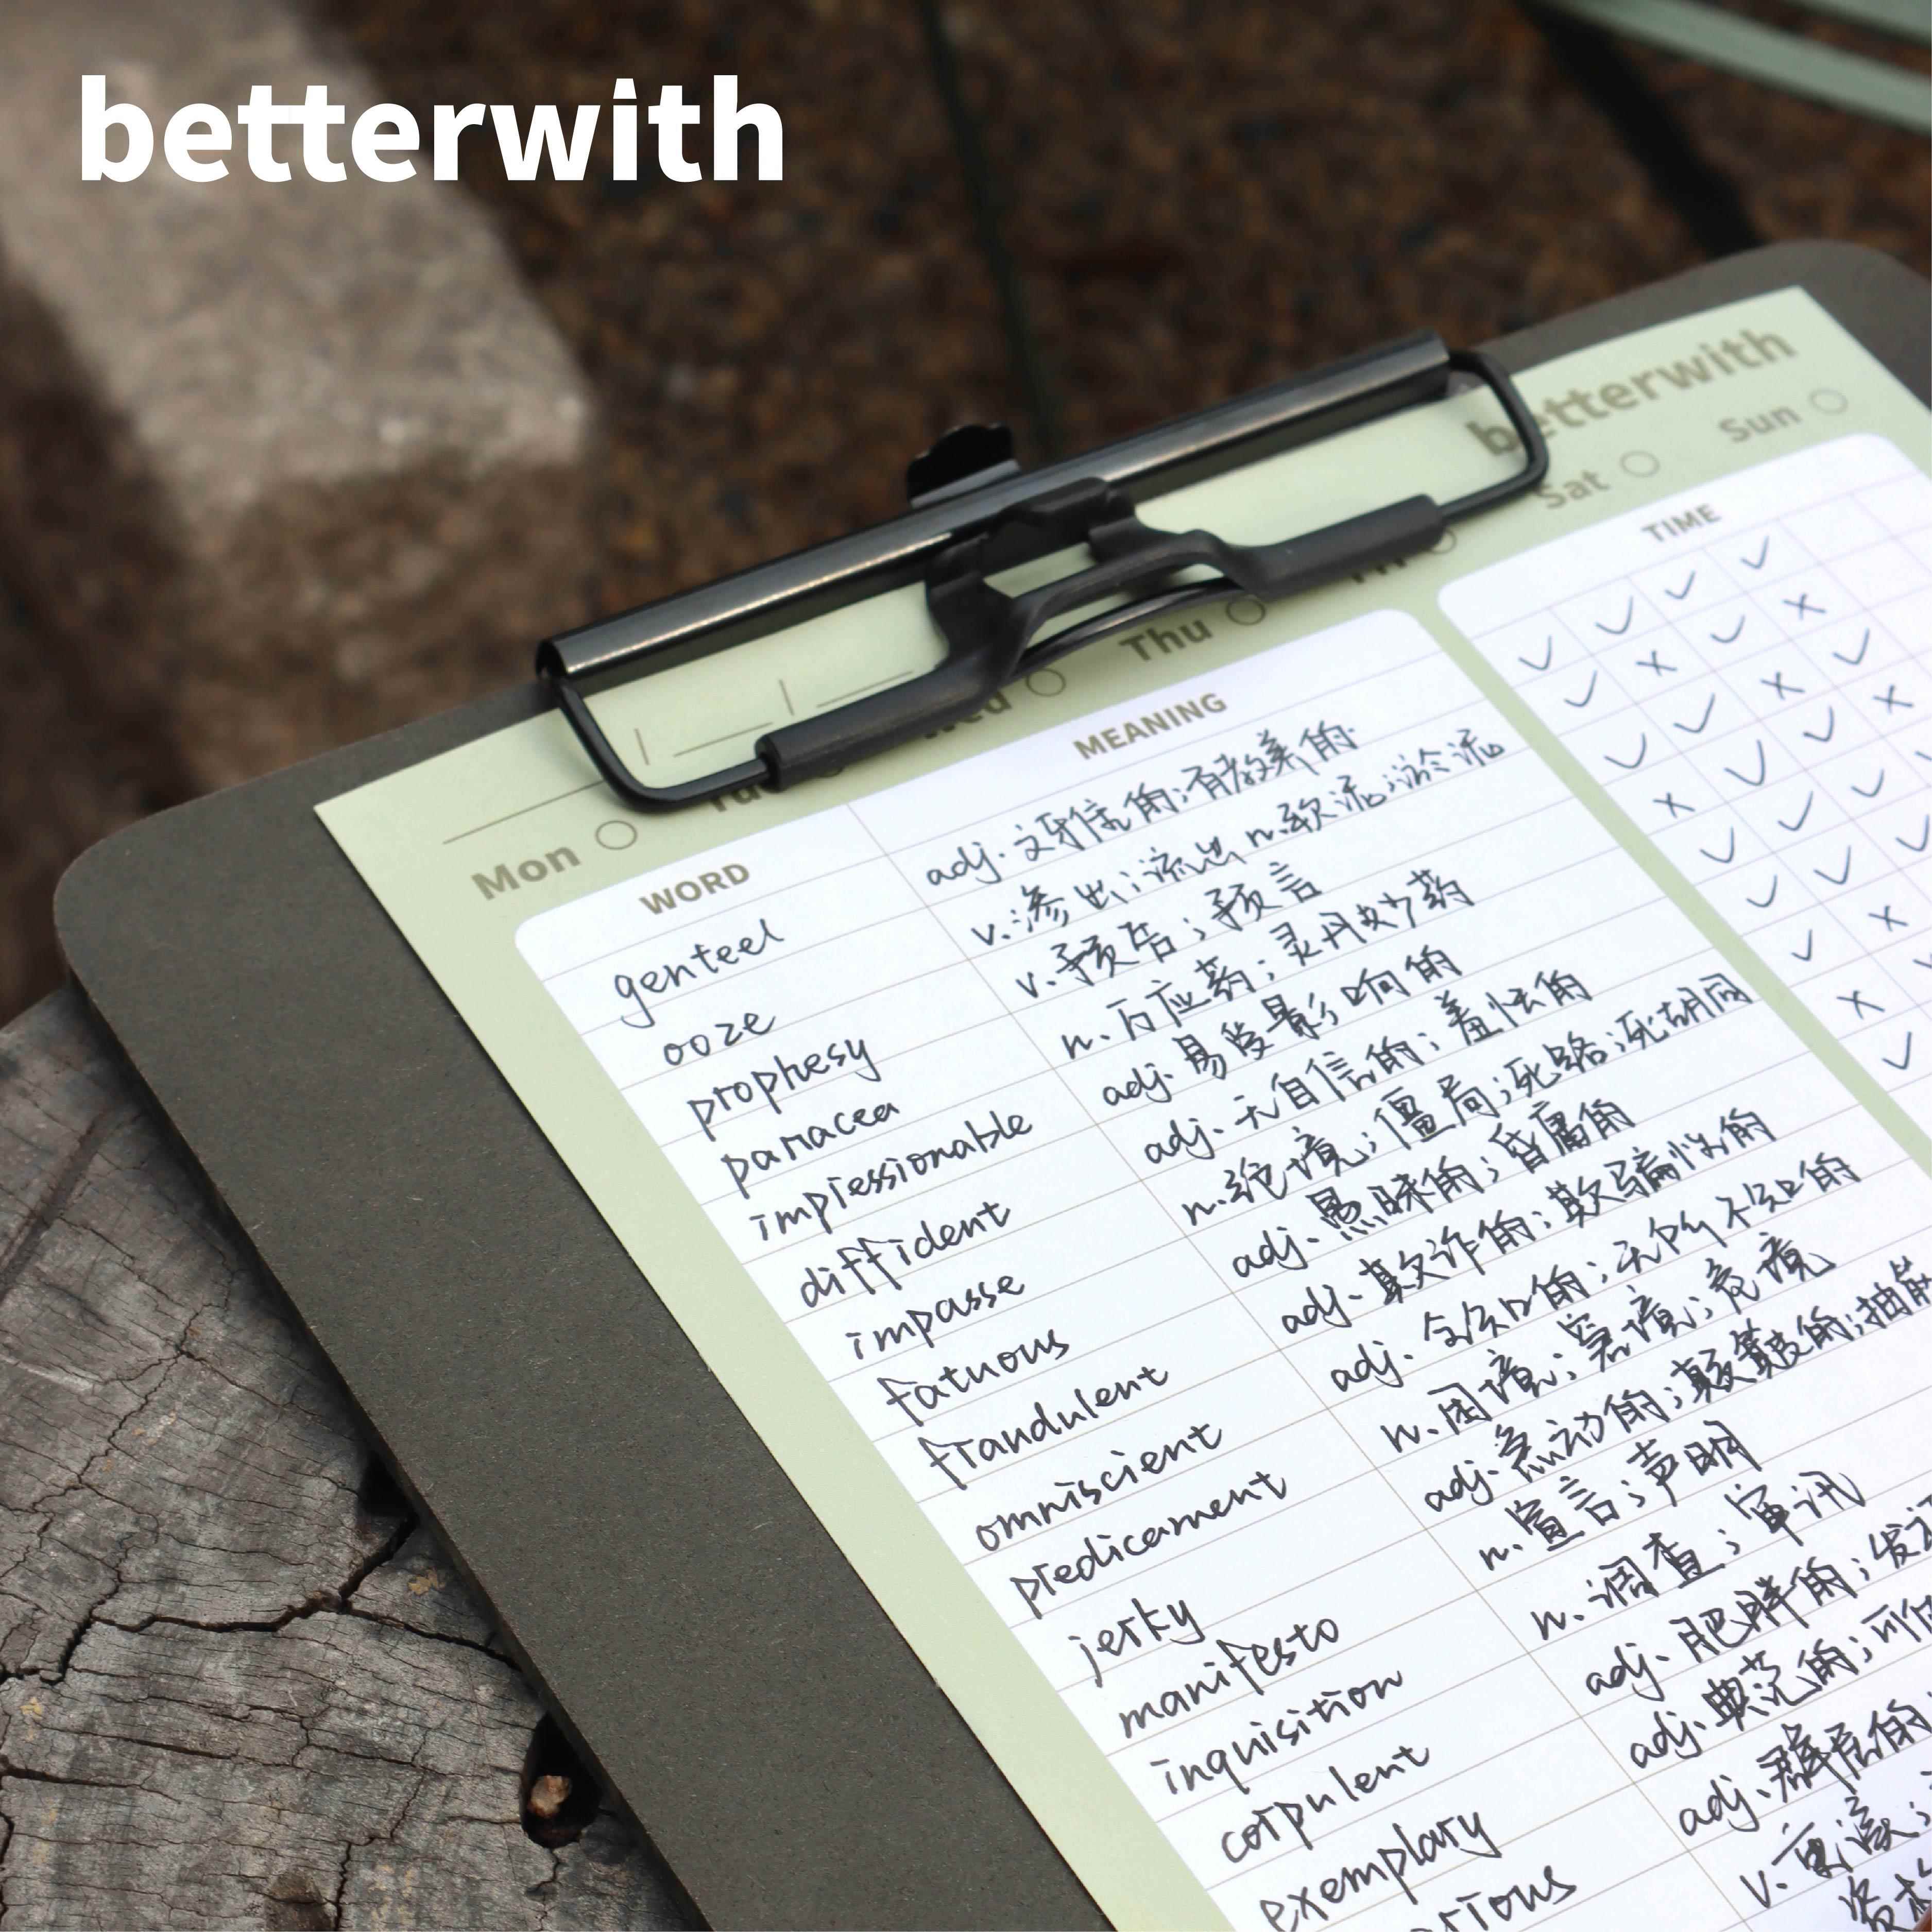 betterwith
betterwith
Mon Thu Sat Sun
WORD MEANING TIME
genteel adj. 文雅的;有教养的
ooze v.渗出;流出 n.软泥;淤泥
prophesy v.预告;预言
panacea n.万应药;灵丹妙药
impressionable adj.易受影响的
diffident adj.无自信的;羞怯的
impasse n.绝境;僵局;死路;死胡同
fatuous adj.愚昧的;昏庸的
fraudulent adj.欺诈的;欺骗性的
omniscient adj.全知的;无所不知的
predicament n.困境;窘境;危境
jerky adj.急动的;颠簸的;抽筋
manifesto n.宣言;声明
inquisition n.调查;审讯
corpulent adj.肥胖的;发
exemplary adj.典范的;可
adj.群居的
v.